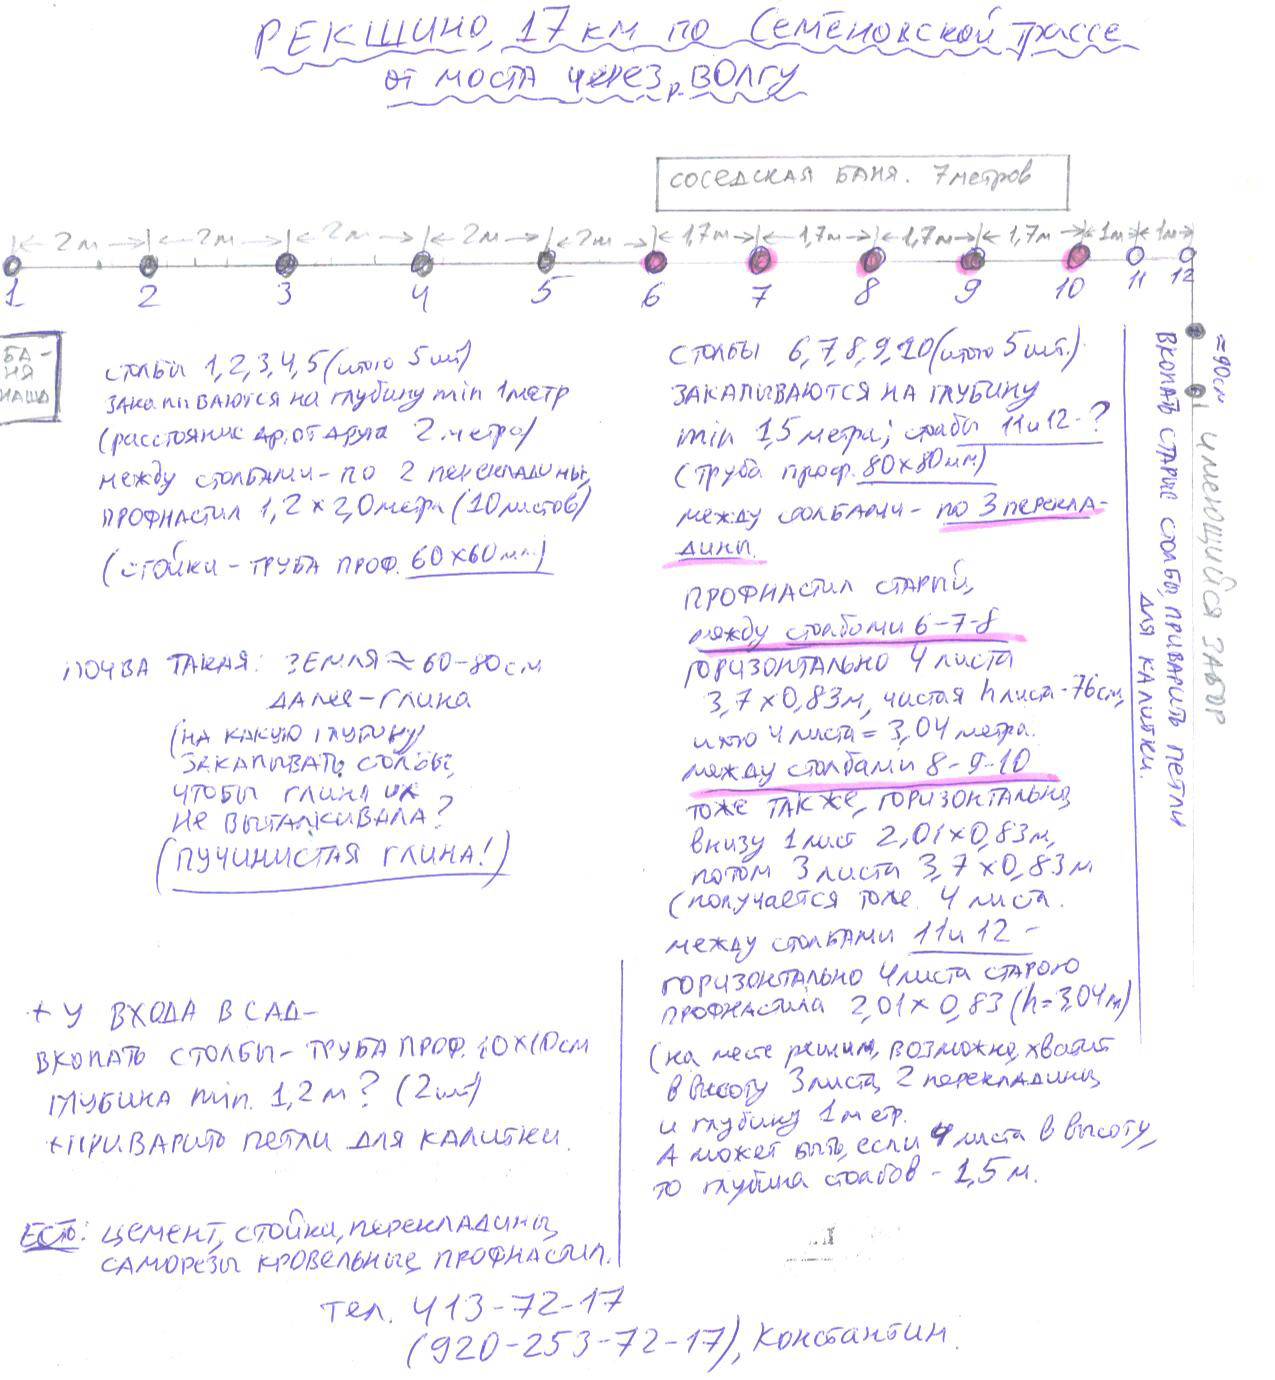 РЕКШИНО, 17 км по Семёновской трассе
от моста через р. Волгу
СОСЕДСКАЯ БАНЯ. 7 метров
2 м 2 м 2 м 2 м 2 м 1,7 м 1,7 м 1,7 м 1,7 м 1 м 1 м
1 2 3 4 5 6 7 8 9 10 11 12
БА-
НЯ
НАША
столбы 1,2,3,4,5 (итого 5 шт)
закапываются на глубину min 1 метр
(расстояние др. от друга 2 метра)
между столбами - по 2 перекладины,
ПРОФНАСТИЛ 1,2 х 2,0 метра (10 листов)
(стойки - ТРУБА ПРОФ. 60х60 мм.)
ПОЧВА ТАКАЯ: ЗЕМЛЯ ≈ 60-80 см
ДАЛЕЕ - ГЛИНА
(НА КАКУЮ ГЛУБИНУ
ЗАКАПЫВАТЬ СТОЛБЫ,
ЧТОБЫ ГЛИНА ИХ
НЕ ВЫТАЛКИВАЛА?
(ПУЧИНИСТАЯ ГЛИНА!)
+ У ВХОДА В САД -
ВКОПАТЬ СТОЛБЫ - ТРУБА ПРОФ. 10х10 см
ГЛУБИНА min. 1,2 м? (2 шт)
+ ПРИВАРИТЬ ПЕТЛИ ДЛЯ КАЛИТКИ.
ЕСТЬ: ЦЕМЕНТ, СТОЙКИ, ПЕРЕКЛАДИНЫ,
САМОРЕЗЫ КРОВЕЛЬНЫЕ, ПРОФНАСТИЛ.
столбы 6,7,8,9,10 (итого 5 шт.)
ЗАКАПЫВАЮТСЯ НА ГЛУБИНУ
min 1,5 метра; столбы 11 и 12 - ?
(труба проф. 80х80 мм)
между столбами - по 3 перекла-
дины.
ПРОФНАСТИЛ СТАРЫЙ,
между столбами 6-7-8
ГОРИЗОНТАЛЬНО 4 листа
3,7 х 0,83 м, чистая h листа - 76 см,
итого 4 листа = 3,04 метра.
между столбами 8-9-10
тоже ТАКЖЕ, ГОРИЗОНТАЛЬНО,
внизу 1 лист 2,01х0,83 м,
потом 3 листа 3,7 х 0,83 м
(получается тоже 4 листа.
между столбами 11 и 12 -
ГОРИЗОНТАЛЬНО 4 листа старого
ПРОФНАСТИЛА 2,01 х 0,83 (h = 3,04 м)
(на месте решим, возможно, хватит
в высоту 3 листа, 2 перекладины
и глубину 1 метр.
А может быть, если 4 листа в высоту,
то глубина столбов - 1,5 м.
ВКОПАТЬ СТАРЫЕ СТОЛБЫ, ПРИВАРИТЬ ПЕТЛИ
ДЛЯ КАЛИТКИ.
≈ 90 см
ИМЕЮЩИЙСЯ ЗАБОР
тел. 413-72-17
(920-253-72-17), Константин.